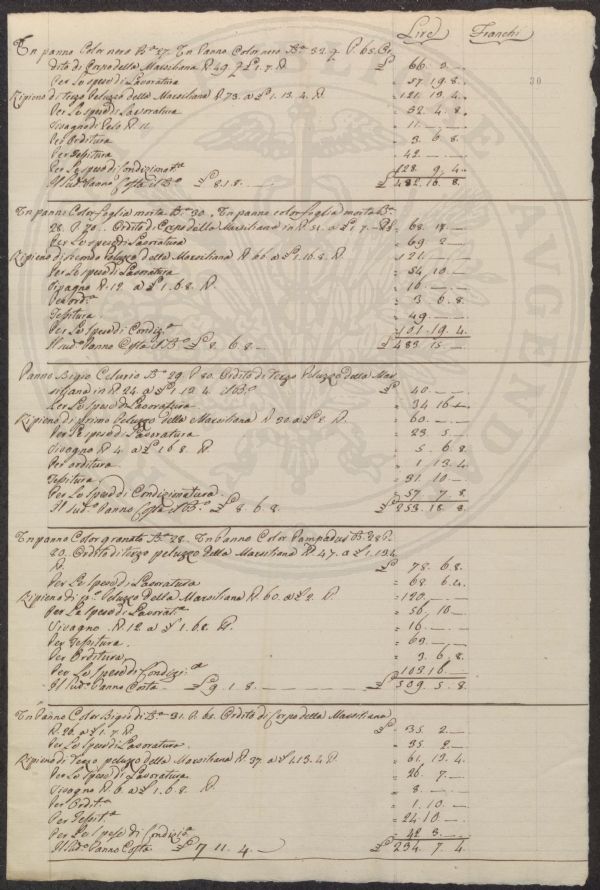 Lire Franchi
30
Un panno Color nero Bⁿ 37. Un Panno Color nero Bⁿ 32. P. 65. Or
dito di Corpo della Marsiliana R. 49. £ 1. 7. R. £ 66. 3. —
Per Le spese di Lavoratura = 57. 19. 8.
Ripieno di terzo Peluzzo della Marsiliana R. 73. a £ 1. 13. 4. R. = 121. 13. 4.
Per Le spese di Lavoratura = 52. 4. 8.
Vivagno di Pelo R. 11. = 11. — —
Per Orditura = 3. 6. 8.
Per Tessitura = 42. — —
Per Le spese di Condizionat.ª = 128. 9. 4.
Il sud.º Panno Costa il Bº £ 8. 1. 8. — £ 482. 16. 8.
Un panno Color foglia morta Bª 30. Un panno color foglia morta Bª
28. P. 70. Ordito di Corpo della Marsiliana in R. 51. a £ 1. 7. — R £ 68. 17. —
Per Le spese di Lavoratura = 69. 2. —
Ripieno di secondo Peluzzo della Marsiliana R. 66. a £ 1. 16. 8. R. = 121. — —
Per Le spese di Lavoratura = 54. 10. —
Vivagno R. 12. a £ 1. 6. 8. R. = 16. — —
Per ord.ª = 3. 6. 8.
Tessitura = 49. — —
Per Le Spese di Condiz.ª = 101. 19. 4.
Il sud.º Panno Costa il Bº £ 8. 6. 8. — £ 483. 15. —
Panno Bigio Celurio Bª 29. P. 80. Ordito di Terzo Peluzzo della Mar
siliana in R. 24. a £ 1. 13. 4. il Bº £ 40. — —
Per Le spese di Lavoratura = 34. 16. —
Ripieno di primo Peluzzo della Marsiliana R. 30. a £ 2. R. = 60. — —
Per Le spese di Lavoratura = 23. 5. —
Vivagno R. 4. a £ 1. 6. 8. R. = 5. 6. 8.
Per orditura = 1. 13. 4.
Tessitura = 31. 10. —
Per Le Spese di Condizionatura = 57. 7. 8.
Il sud.º Panno Costa il Bº £ 8. 6. 8. £ 253. 18. 8.
Un panno Color granata Bª 28. Un Panno Color Pampadur Bª 28. P.
80. Ordito di terzo peluzzo della Marsiliana R. 47. a £ 1. 13. 4.
R. £ 78. 6. 8.
Per Le Spese di Lavoratura = 68. 6. 4.
Ripieno di p.º Peluzzo della Marsiliana R. 60. a £ 2. R. = 120. — —
Per Le spese di Lavorat.ª = 56. 10. —
Vivagno R. 12. a £ 1. 6. 8. R. = 16. — —
Per Tessitura = 63. — —
Per Orditura = 3. 6. 8.
Per Le Spese di Condizi.ª = 103. 16. —
Il sud.º Panno Costa £ 9. 1. 8. — £ 509. 5. 8.
Un Panno Color Bigio di Bª 31. P. 60. Ordito di Corpo della Marsiliana
R. 26. a £ 1. 7. R. £ 35. 2. —
Per Le Spese di Lavoratura = 35. 2. —
Ripieno di terzo peluzzo della Marsiliana R. 37. a £ 1. 13. 4. R. = 61. 13. 4.
Per Le Spese di Lavoratura = 26. 7. —
Vivagno R. 6. a £ 1. 6. 8. R. = 8. — —
Per Ordit.ª = 1. 10. —
Per Tessit.ª = 24. 10. —
Per Le Spese di Condiz.ª = 42. 3. —
Il sud.º Panno Costa £ 7. 11. 4. — £ 234. 7. 4.